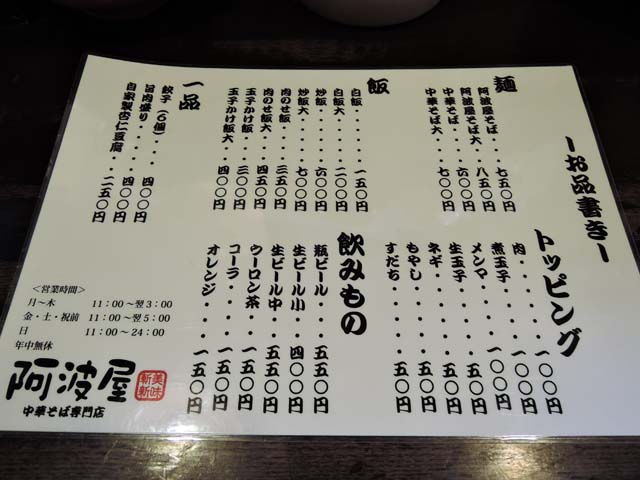 ーお品書きー
麺
阿波屋そば・・・七五〇円
阿波屋そば大・・八五〇円
中華そば・・・・六〇〇円
中華そば大・・・七〇〇円
飯
白飯・・・・・一五〇円
白飯大・・・・二〇〇円
炒飯・・・・・六〇〇円
炒飯大・・・・七〇〇円
肉のせ飯・・・三五〇円
肉のせ飯大・・四五〇円
玉子かけ飯・・三〇〇円
玉子かけ飯大・四〇〇円
一品
餃子(6個)・・四〇〇円
旨肉盛り・・・四〇〇円
自家製杏仁豆腐・・・二五〇円
トッピング
肉・・・・・・・一〇〇円
煮玉子・・・・・一〇〇円
メンマ・・・・・一〇〇円
生玉子・・・・・・五〇円
ネギ・・・・・・・五〇円
もやし・・・・・・五〇円
すだち・・・・・・五〇円
飲みもの
瓶ビール・・・・五五〇円
生ビール小・・・四〇〇円
生ビール中・・・五五〇円
ウーロン茶・・・一五〇円
コーラ・・・・・一五〇円
オレンジ・・・・一五〇円
＜営業時間＞
月～木 11：00～翌3：00
金・土・祝前 11：00～翌5：00
日 11：00～24：00
年中無休
阿波屋
中華そば専門店